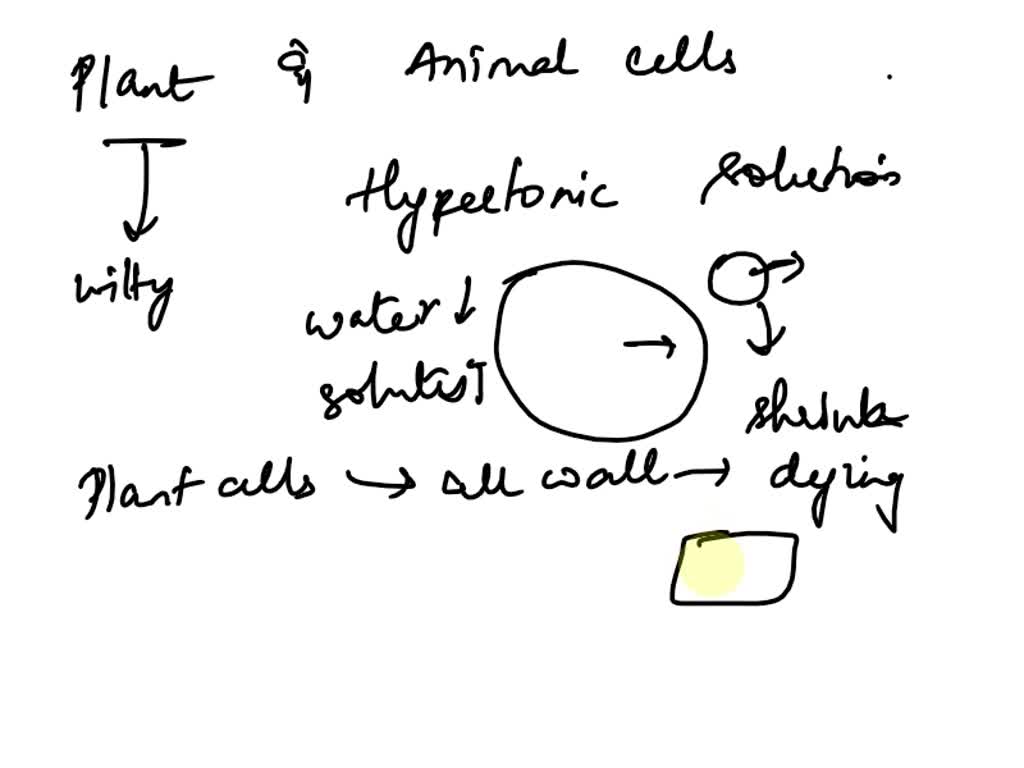 Plant & Animal cells
Hypertonic solutions
wilty
water ↓
solutes ↑
shrink
Plant cells → cell wall → dying